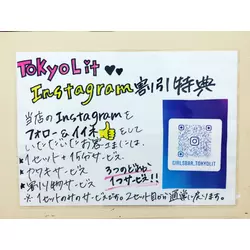 TOKYOLit ♥♥
Instagram割引特典
当店のInstagramを
フォロー&イイネ👍をして
いただいたお客さまには、
・1セット+15分サービス
・ヤマキサービス
・割り物サービス
3つのどれか
1つサービス!!
※1セットのみのサービスです。2セット目から通常に戻ります。
GIRLSBAR.TOKYOLIT